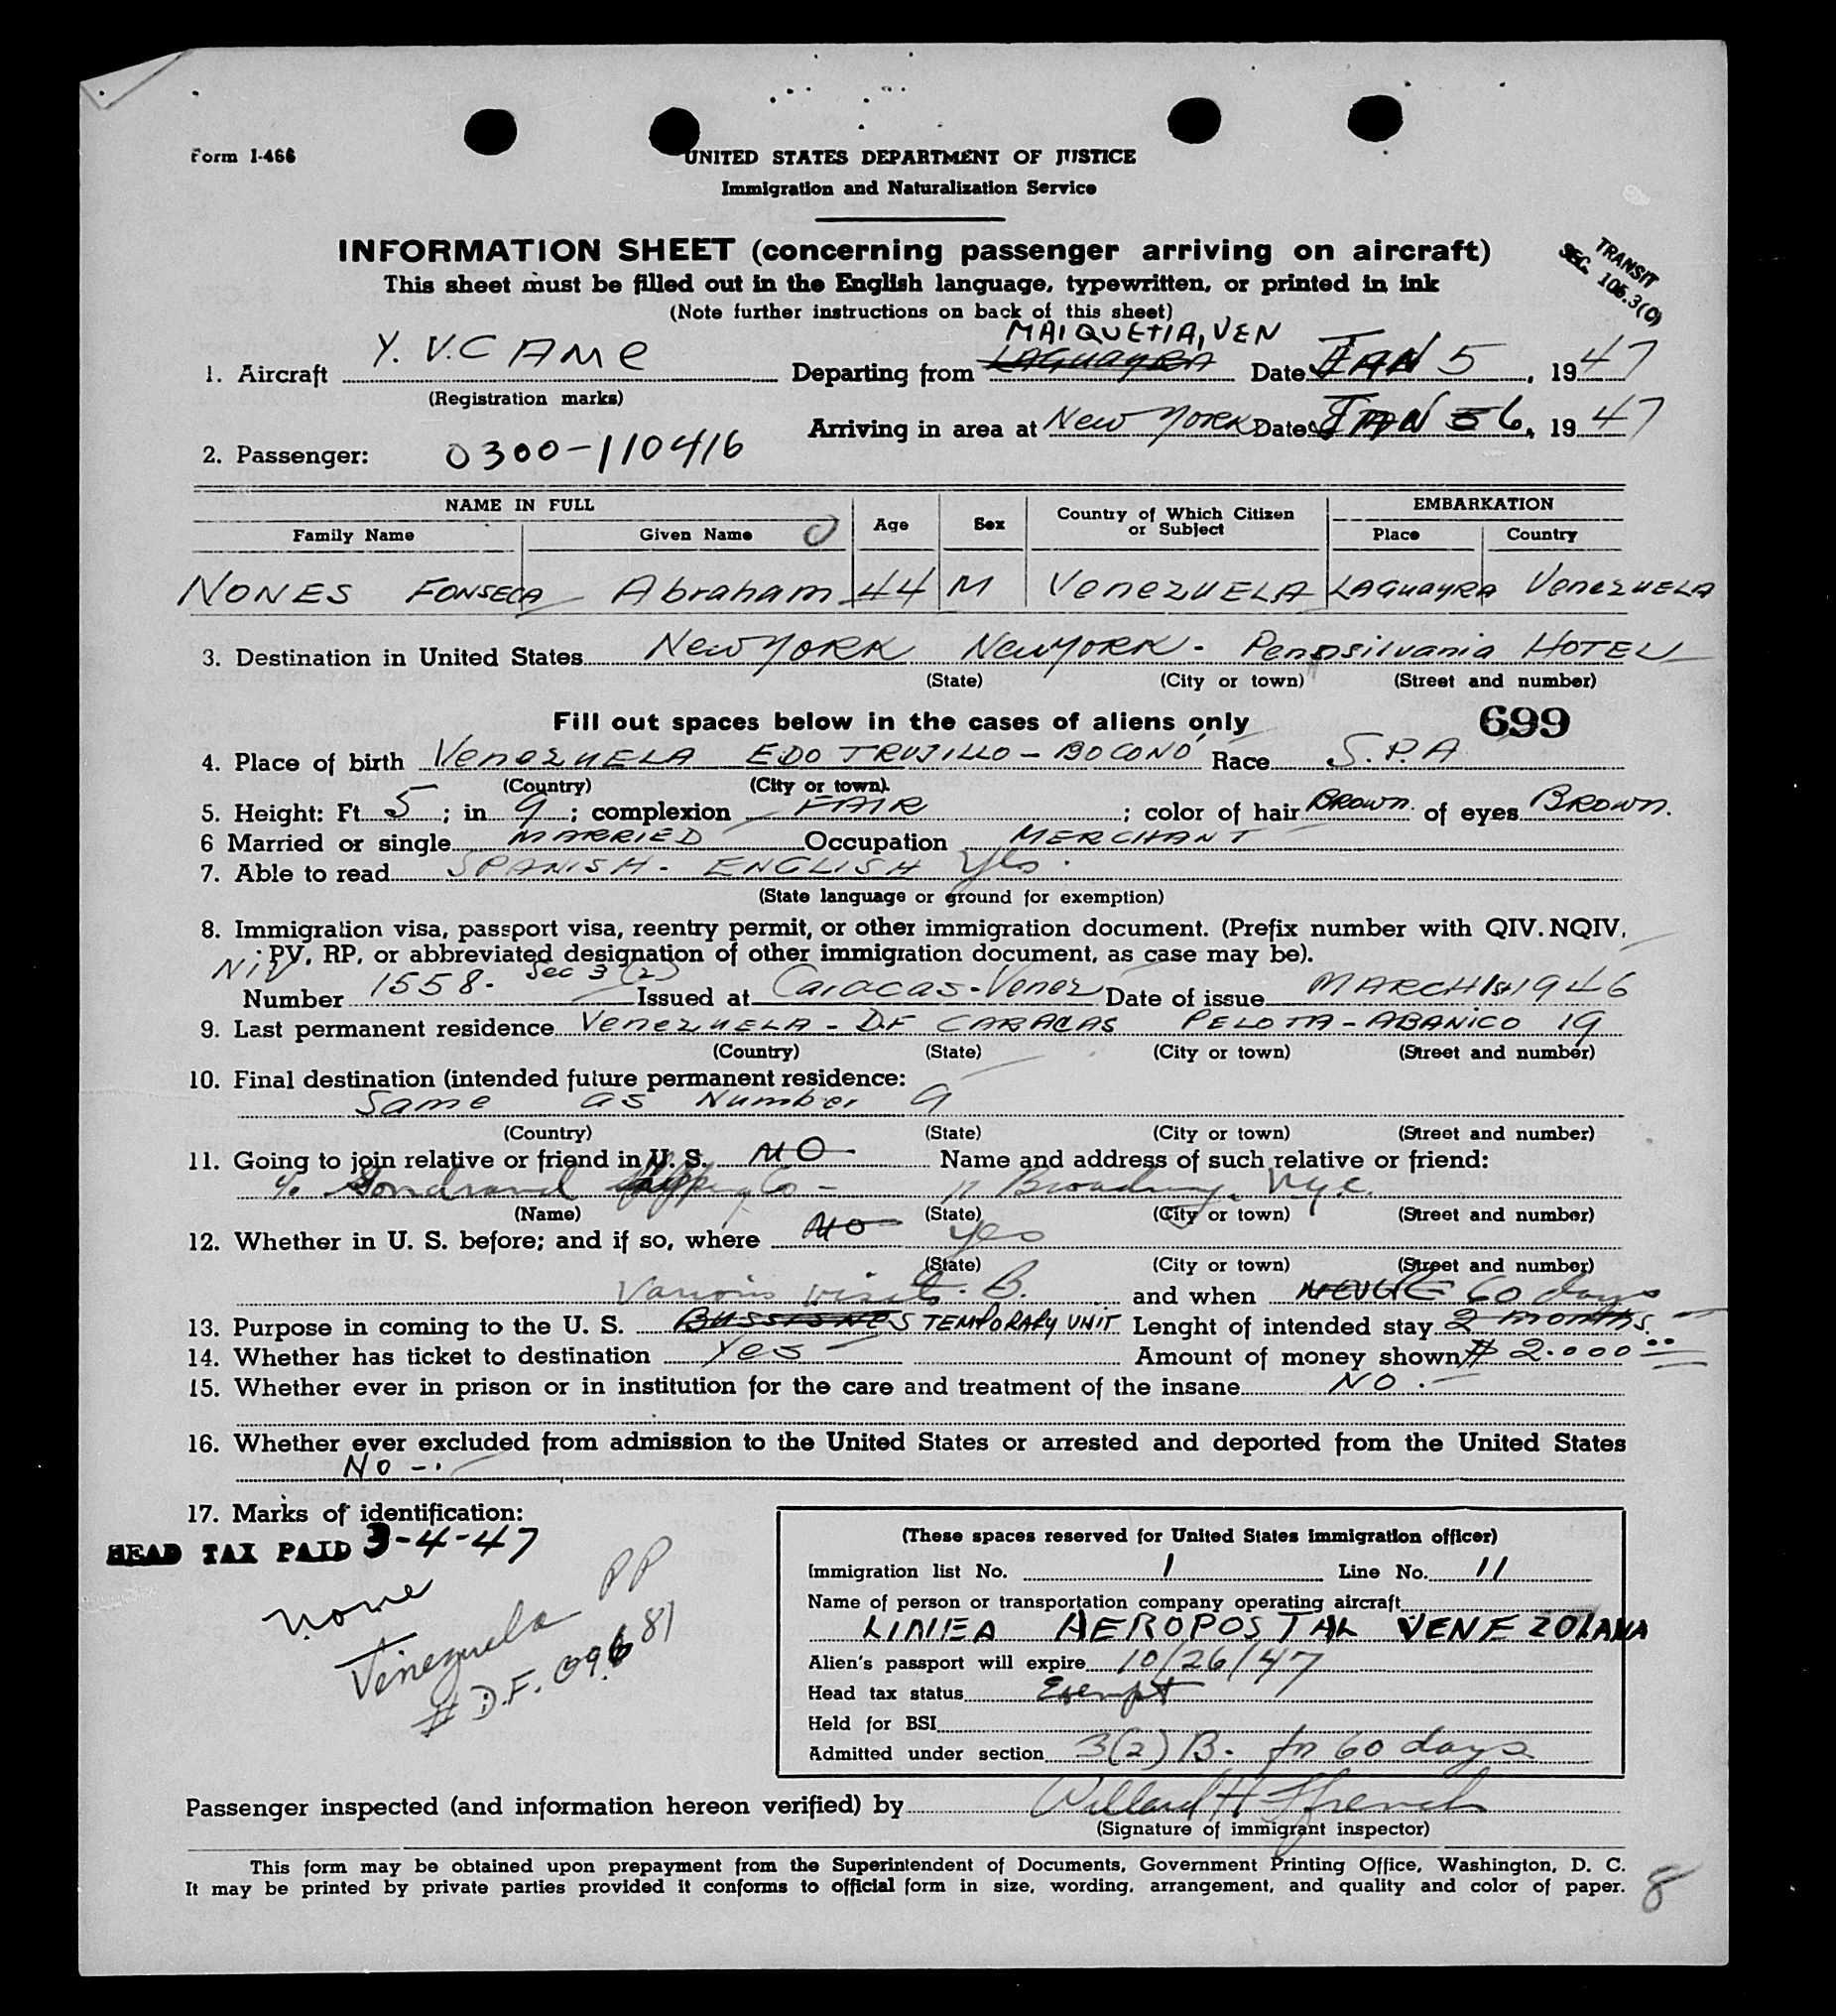 Form I-466
UNITED STATES DEPARTMENT OF JUSTICE
Immigration and Naturalization Service
INFORMATION SHEET (concerning passenger arriving on aircraft)
This sheet must be filled out in the English language, typewritten, or printed in ink
(Note further instructions on back of this sheet)
TRANSIT
SEC. 105.3(0)
MAIQUETIA, VEN
1. Aircraft Y. V.C AME Departing from LAGUAYRA Date JAN 5, 1947
(Registration marks)
Arriving in area at New YORK Date JAN 5 6, 1947
2. Passenger: 0300-110416
NAME IN FULL Age Sex Country of Which Citizen or Subject EMBARKATION
Family Name Given Name Place Country
NONES FONSECA Abraham 44 M VenezUELA LAGUAYRA VenezUELA
3. Destination in United States New YORK New YORK - Pennsilvania HOTEL
(State) (City or town) (Street and number)
Fill out spaces below in the cases of aliens only 699
4. Place of birth VenezUELA EDO TRUJILLO - BOCONÓ Race S.P.A
(Country) (City or town).
5. Height: Ft. 5 ; in 9 ; complexion FAIR ; color of hair BROWN. of eyes BROWN.
6 Married or single MARRIED Occupation MERCHANT
7. Able to read SPANISH - ENGLISH yes.
(State language or ground for exemption)
8. Immigration visa, passport visa, reentry permit, or other immigration document. (Prefix number with QIV. NQIV,
PV, RP, or abbreviated designation of other immigration document, as case may be).
NIV
Number 1558 - Sec 3 (2) Issued at Caracas - Venez Date of issue MARCH 1st 1946
9. Last permanent residence VenezUELA - D.F CARACAS PELOTA - ABANICO 19
(Country) (State) (City or town) (Street and number)
10. Final destination (intended future permanent residence:
Same as Number 9
(Country) (State) (City or town) (Street and number)
11. Going to join relative or friend in U. S. NO Name and address of such relative or friend:
% Gondrand Shipping Co - Broadway. N.y.c.
(Name) (State) (City or town) (Street and number)
12. Whether in U. S. before; and if so, where NO yes
(State) (City or town) (Street and number)
Various visits. B. and when NEVER 60 days
13. Purpose in coming to the U. S. BUSSISNES TEMPORARY UNIT Lenght of intended stay 2 months.
14. Whether has ticket to destination Yes - Amount of money shown $ 2.000
15. Whether ever in prison or in institution for the care and treatment of the insane NO.-
16. Whether ever excluded from admission to the United States or arrested and deported from the United States
NO -.
17. Marks of identification:
HEAD TAX PAID 3-4-47
none
Venezuela PP
# D.F. 09681
(These spaces reserved for United States immigration officer)
Immigration list No. 1 Line No. 11
Name of person or transportation company operating aircraft
LINEA AEROPOSTAL VENEZOLANA
Alien's passport will expire 10/26/47
Head tax status Exempt
Held for BSI
Admitted under section 3(2) B. fr 60 days
Passenger inspected (and information hereon verified) by Willard H Ffrench
(Signature of immigrant inspector)
This form may be obtained upon prepayment from the Superintendent of Documents, Government Printing Office, Washington, D. C.
It may be printed by private parties provided it conforms to official form in size, wording, arrangement, and quality and color of paper.
8